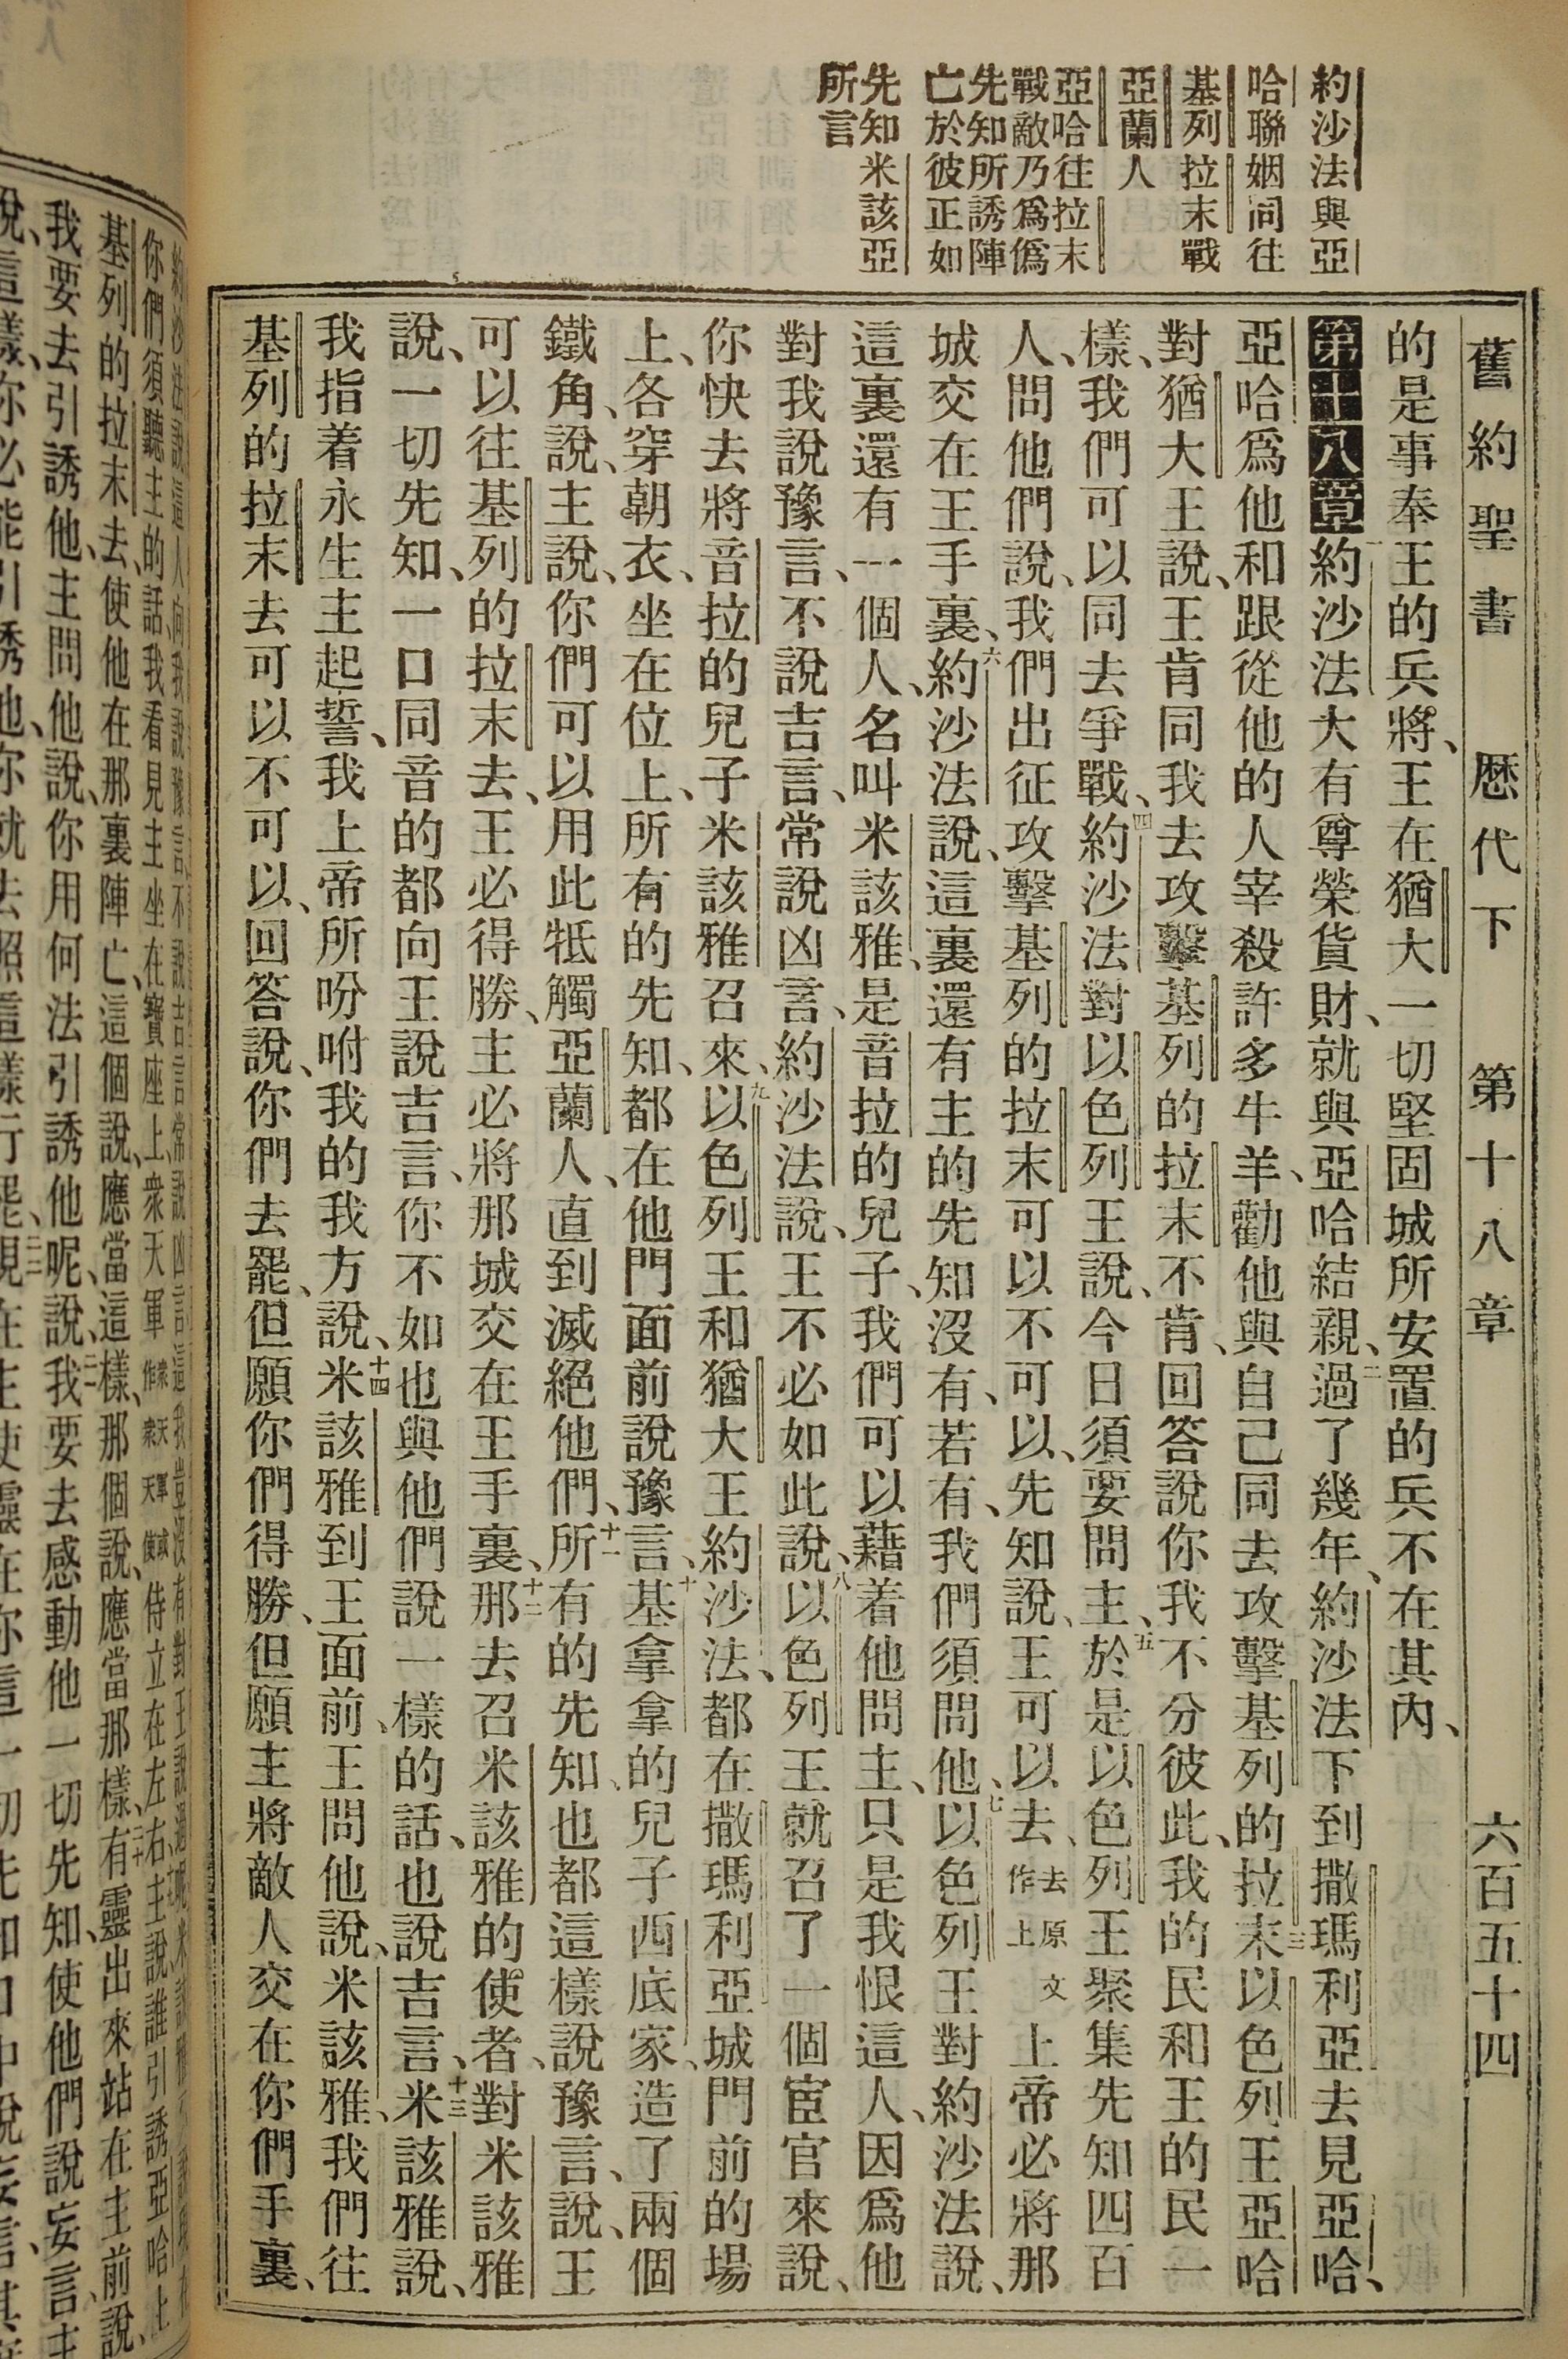 舊約聖書 歷代下 第十八章 六百五十四
約沙法與亞
哈聯姻同往
基列拉末戰
亞蘭人
亞哈往拉末
戰敵乃爲僞
先知所誘陣
亡於彼正如
先知米該亞
所言
的是事奉王的兵將、王在猶大一切堅固城所安置的兵不在其內、
第十八章一約沙法大有尊榮貨財、就與亞哈結親、二過了幾年、約沙法下到撒瑪利亞去見亞哈、
亞哈爲他和跟從他的人宰殺許多牛羊、勸他與自己同去攻擊基列的拉末、三以色列王亞哈
對猶大王說、王肯同我去攻擊基列的拉末不肯、回答說你我不分彼此、我的民和王的民一
樣、我們可以同去爭戰、四約沙法對以色列王說、今日須要問主、五於是以色列王聚集先知四百
人、問他們說、我們出征攻擊基列的拉末可以不可以、先知說、王可以去、去原文作上上帝必將那
城交在王手裏、六約沙法說、這裏還有主的先知沒有、若有、我們須問他、七以色列王對約沙法說、
這裏還有一個人、名叫米該雅、是音拉的兒子、我們可以藉着他問主、只是我恨這人、因爲他
對我說豫言、不說吉言、常說凶言、約沙法說、王不必如此說、八以色列王就召了一個宦官來說、
你快去將音拉的兒子米該雅召來、九以色列王和猶大王約沙法、都在撒瑪利亞城門前的場
上、各穿朝衣、坐在位上、所有的先知、都在他門面前說豫言、十基拿拿的兒子西底家、造了兩個
鐵角、說、主說、你們可以用此牴觸亞蘭人、直到滅絕他們、十一所有的先知、也都這樣說豫言、說、王
可以往基列的拉末去、王必得勝、主必將那城交在王手裏、十二那去召米該雅的使者、對米該雅
說、一切先知、一口同音的都向王說吉言、你不如也與他們說一樣的話、也說吉言、十三米該雅說、
我指着永生主起誓、我上帝所吩咐我的我方說、十四米該雅到王面前、王問他說、米該雅、我們往
基列的拉末去可以不可以、回答說、你們去罷、但願你們得勝、但願主將敵人交在你們手裏、
你們須聽主的話、我看見主坐在寶座上、衆天軍侍立在左右、主說誰引誘亞哈上
基列的拉末去、使他在那裏陣亡、這個說、應當這樣、那個說、應當那樣、二十有靈出來站在主前說、
我要去引誘他、主問他說、你用何法引誘他呢、說、二一我要去感動他一切先知、使他們說妄言、主